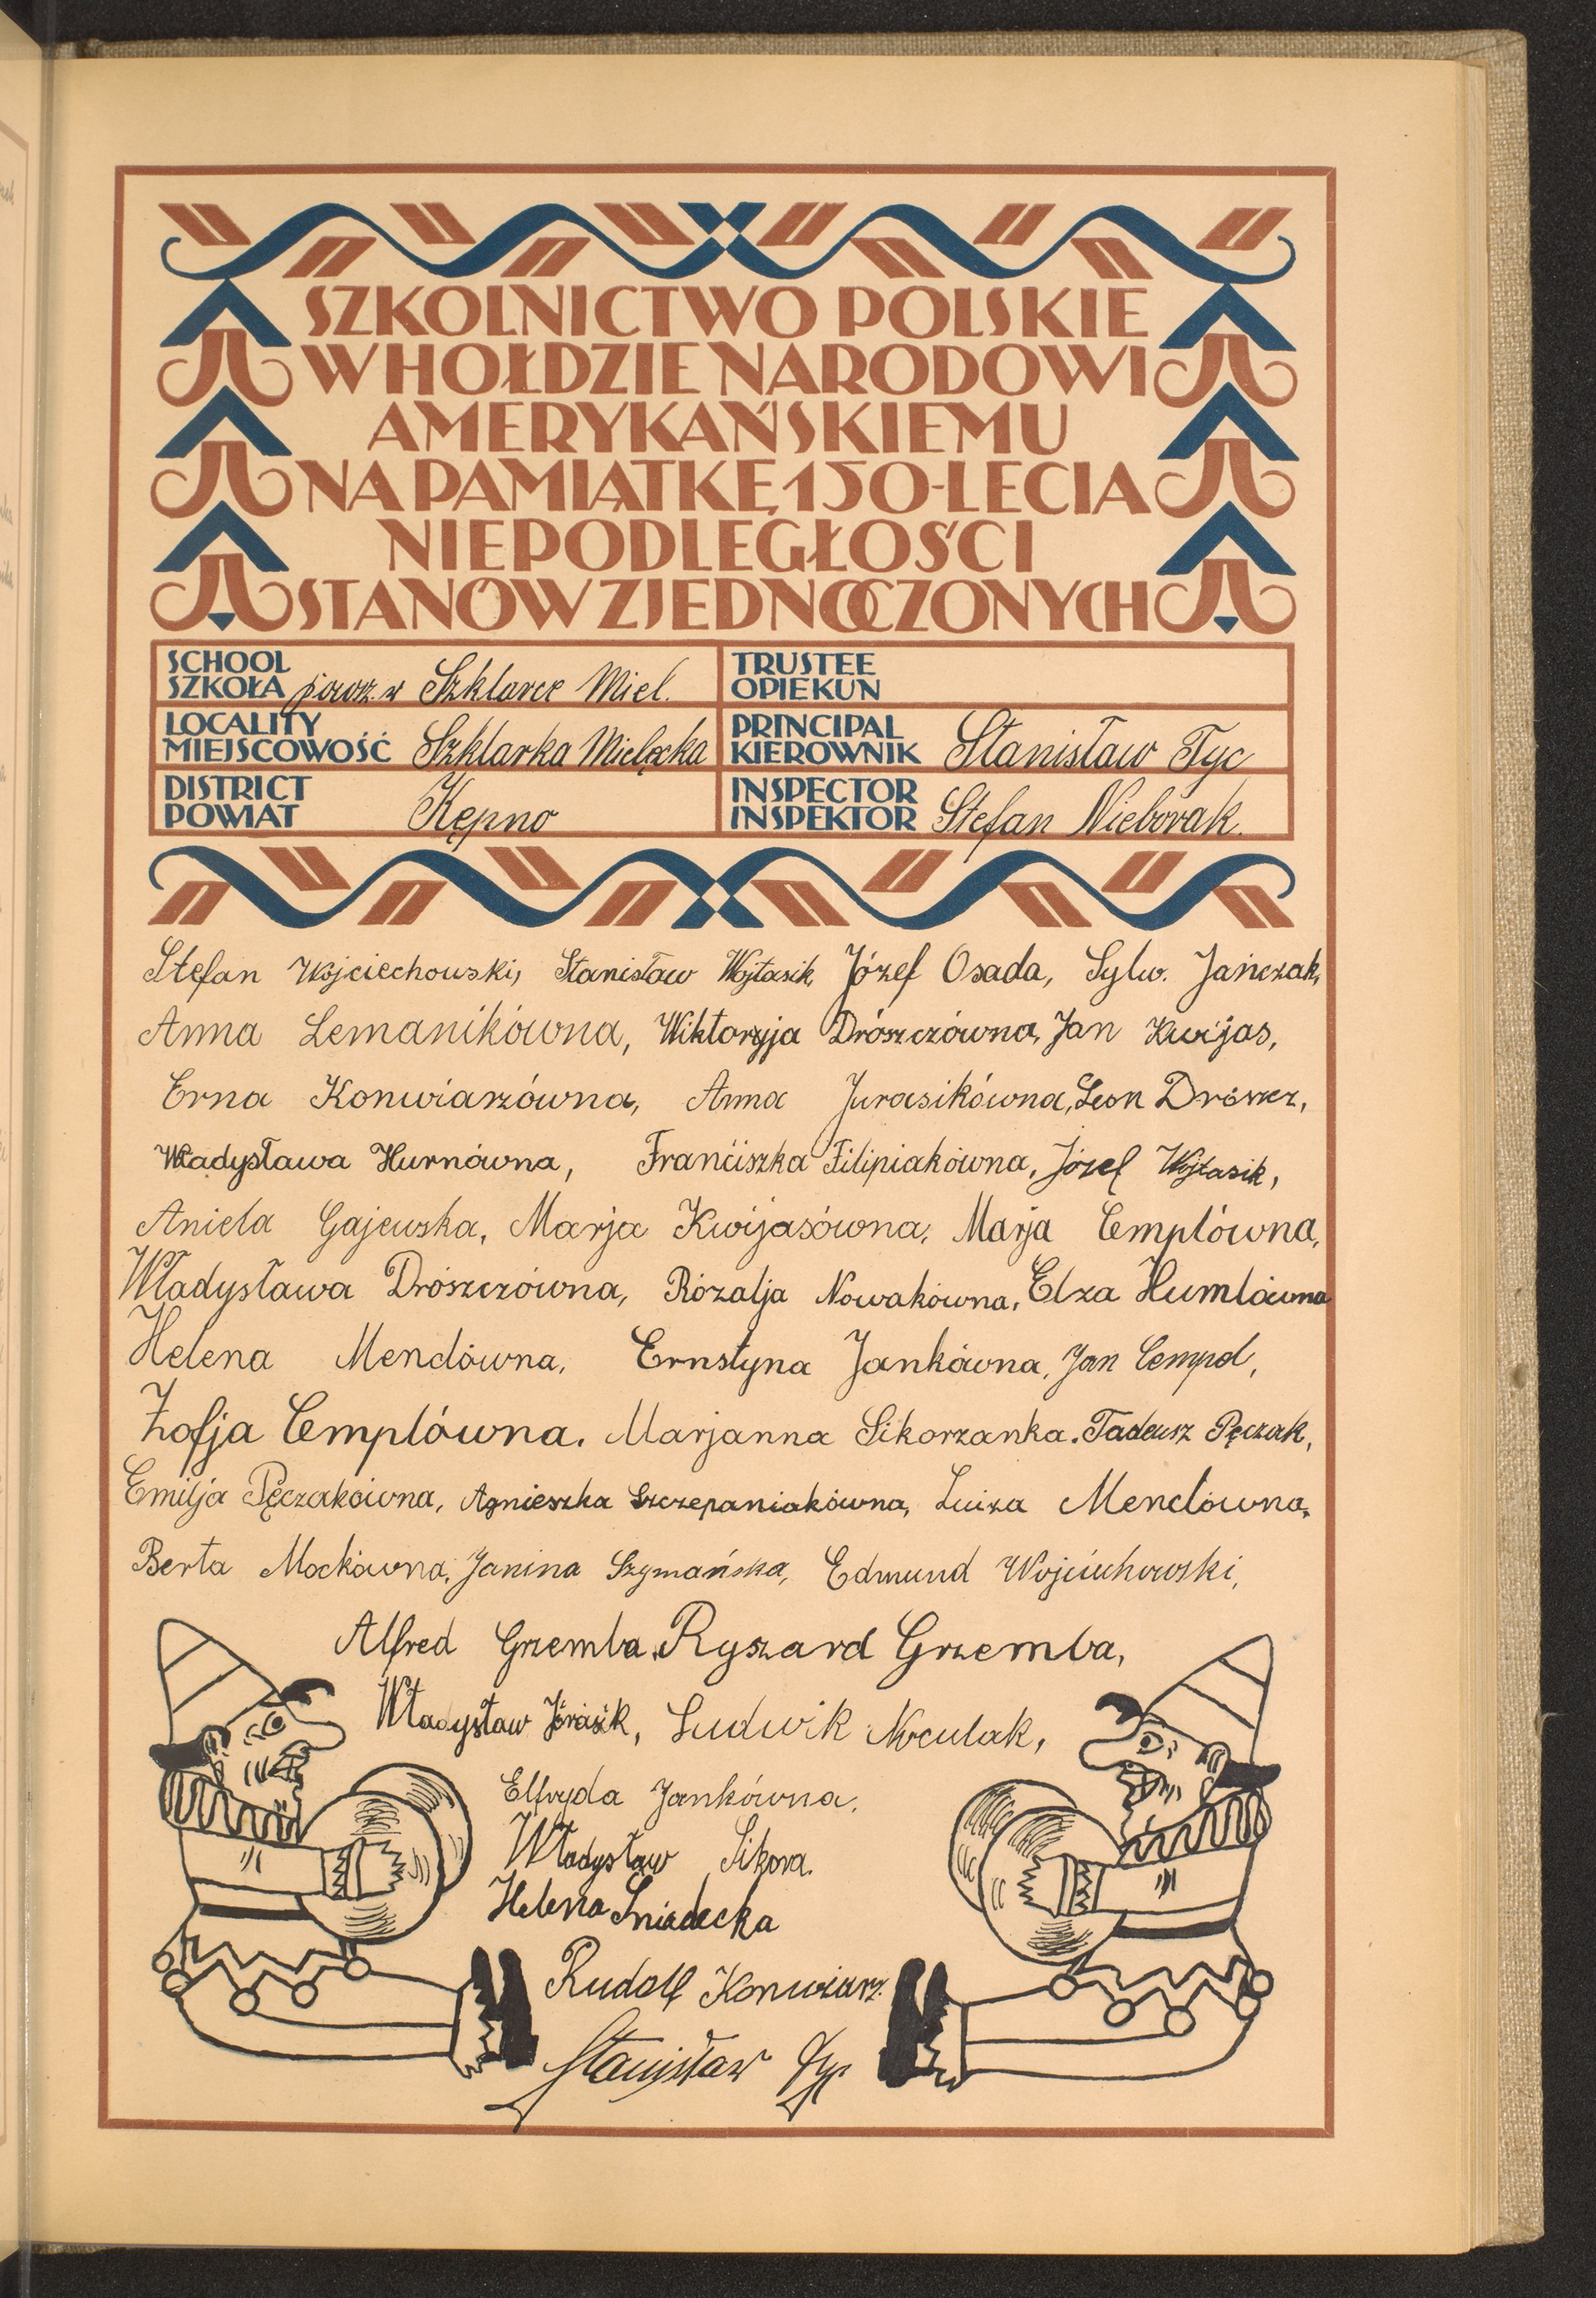 SZKOLNICTWO POLSKIE
W HOŁDZIE NARODOWI
AMERYKAŃSKIEMU
NA PAMIĄTKĘ 150-LECIA
NIEPODLEGŁOŚCI
STANÓW ZJEDNOCZONYCH
SCHOOL
SZKOŁA powsz. w Szklarce Miel.
TRUSTEE
OPIEKUN
LOCALITY
MIEJSCOWOŚĆ Szklarka Mielęcka
PRINCIPAL
KIEROWNIK Stanisław Tyc
DISTRICT
POWIAT Kępno
INSPECTOR
INSPEKTOR Stefan Nieborak.
Stefan Wojciechowski, Stanisław Wojtasik, Józef Osada, Sylw. Jańczak,
Anna Lemanikówna, Wiktoryja Drószczówna, Jan Kwijas,
Erna Konwiarzówna, Anna Jurasikówna, Leon Drószcz,
Władysława Hurnówna, Franciszka Filipiakówna, Józef Wojtasik,
Aniela Gajewska, Marja Kwijasówna, Marja Cemplówna,
Władysława Drószczówna, Rózalja Nowakówna, Elza Humlówna
Helena Menclówna, Ernstyna Jankówna, Jan Cempel,
Zofja Cemplówna. Marjanna Sikorzanka. Tadeusz Pęczak,
Emilja Pęczakówna, Agnieszka Szczepaniakówna, Luiza Menclówna,
Berta Mockówna, Janina Szymańska, Edmund Wojciechowski,
Alfred Grzemba, Ryszard Grzemba,
Władysław Jórasik, Ludwik Noculak,
Elfryda Jankówna,
Władysław Sikora.
Helena Śniadecka
Rudolf Konwiarz.
Stanisław Tyc